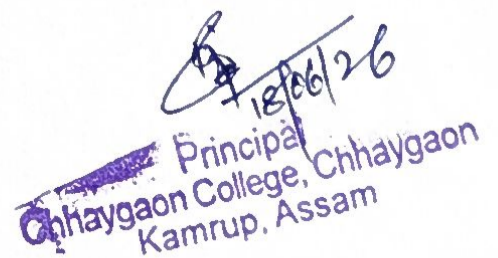 18/06/26
Principal
Chhaygaon College, Chhaygaon
Kamrup, Assam